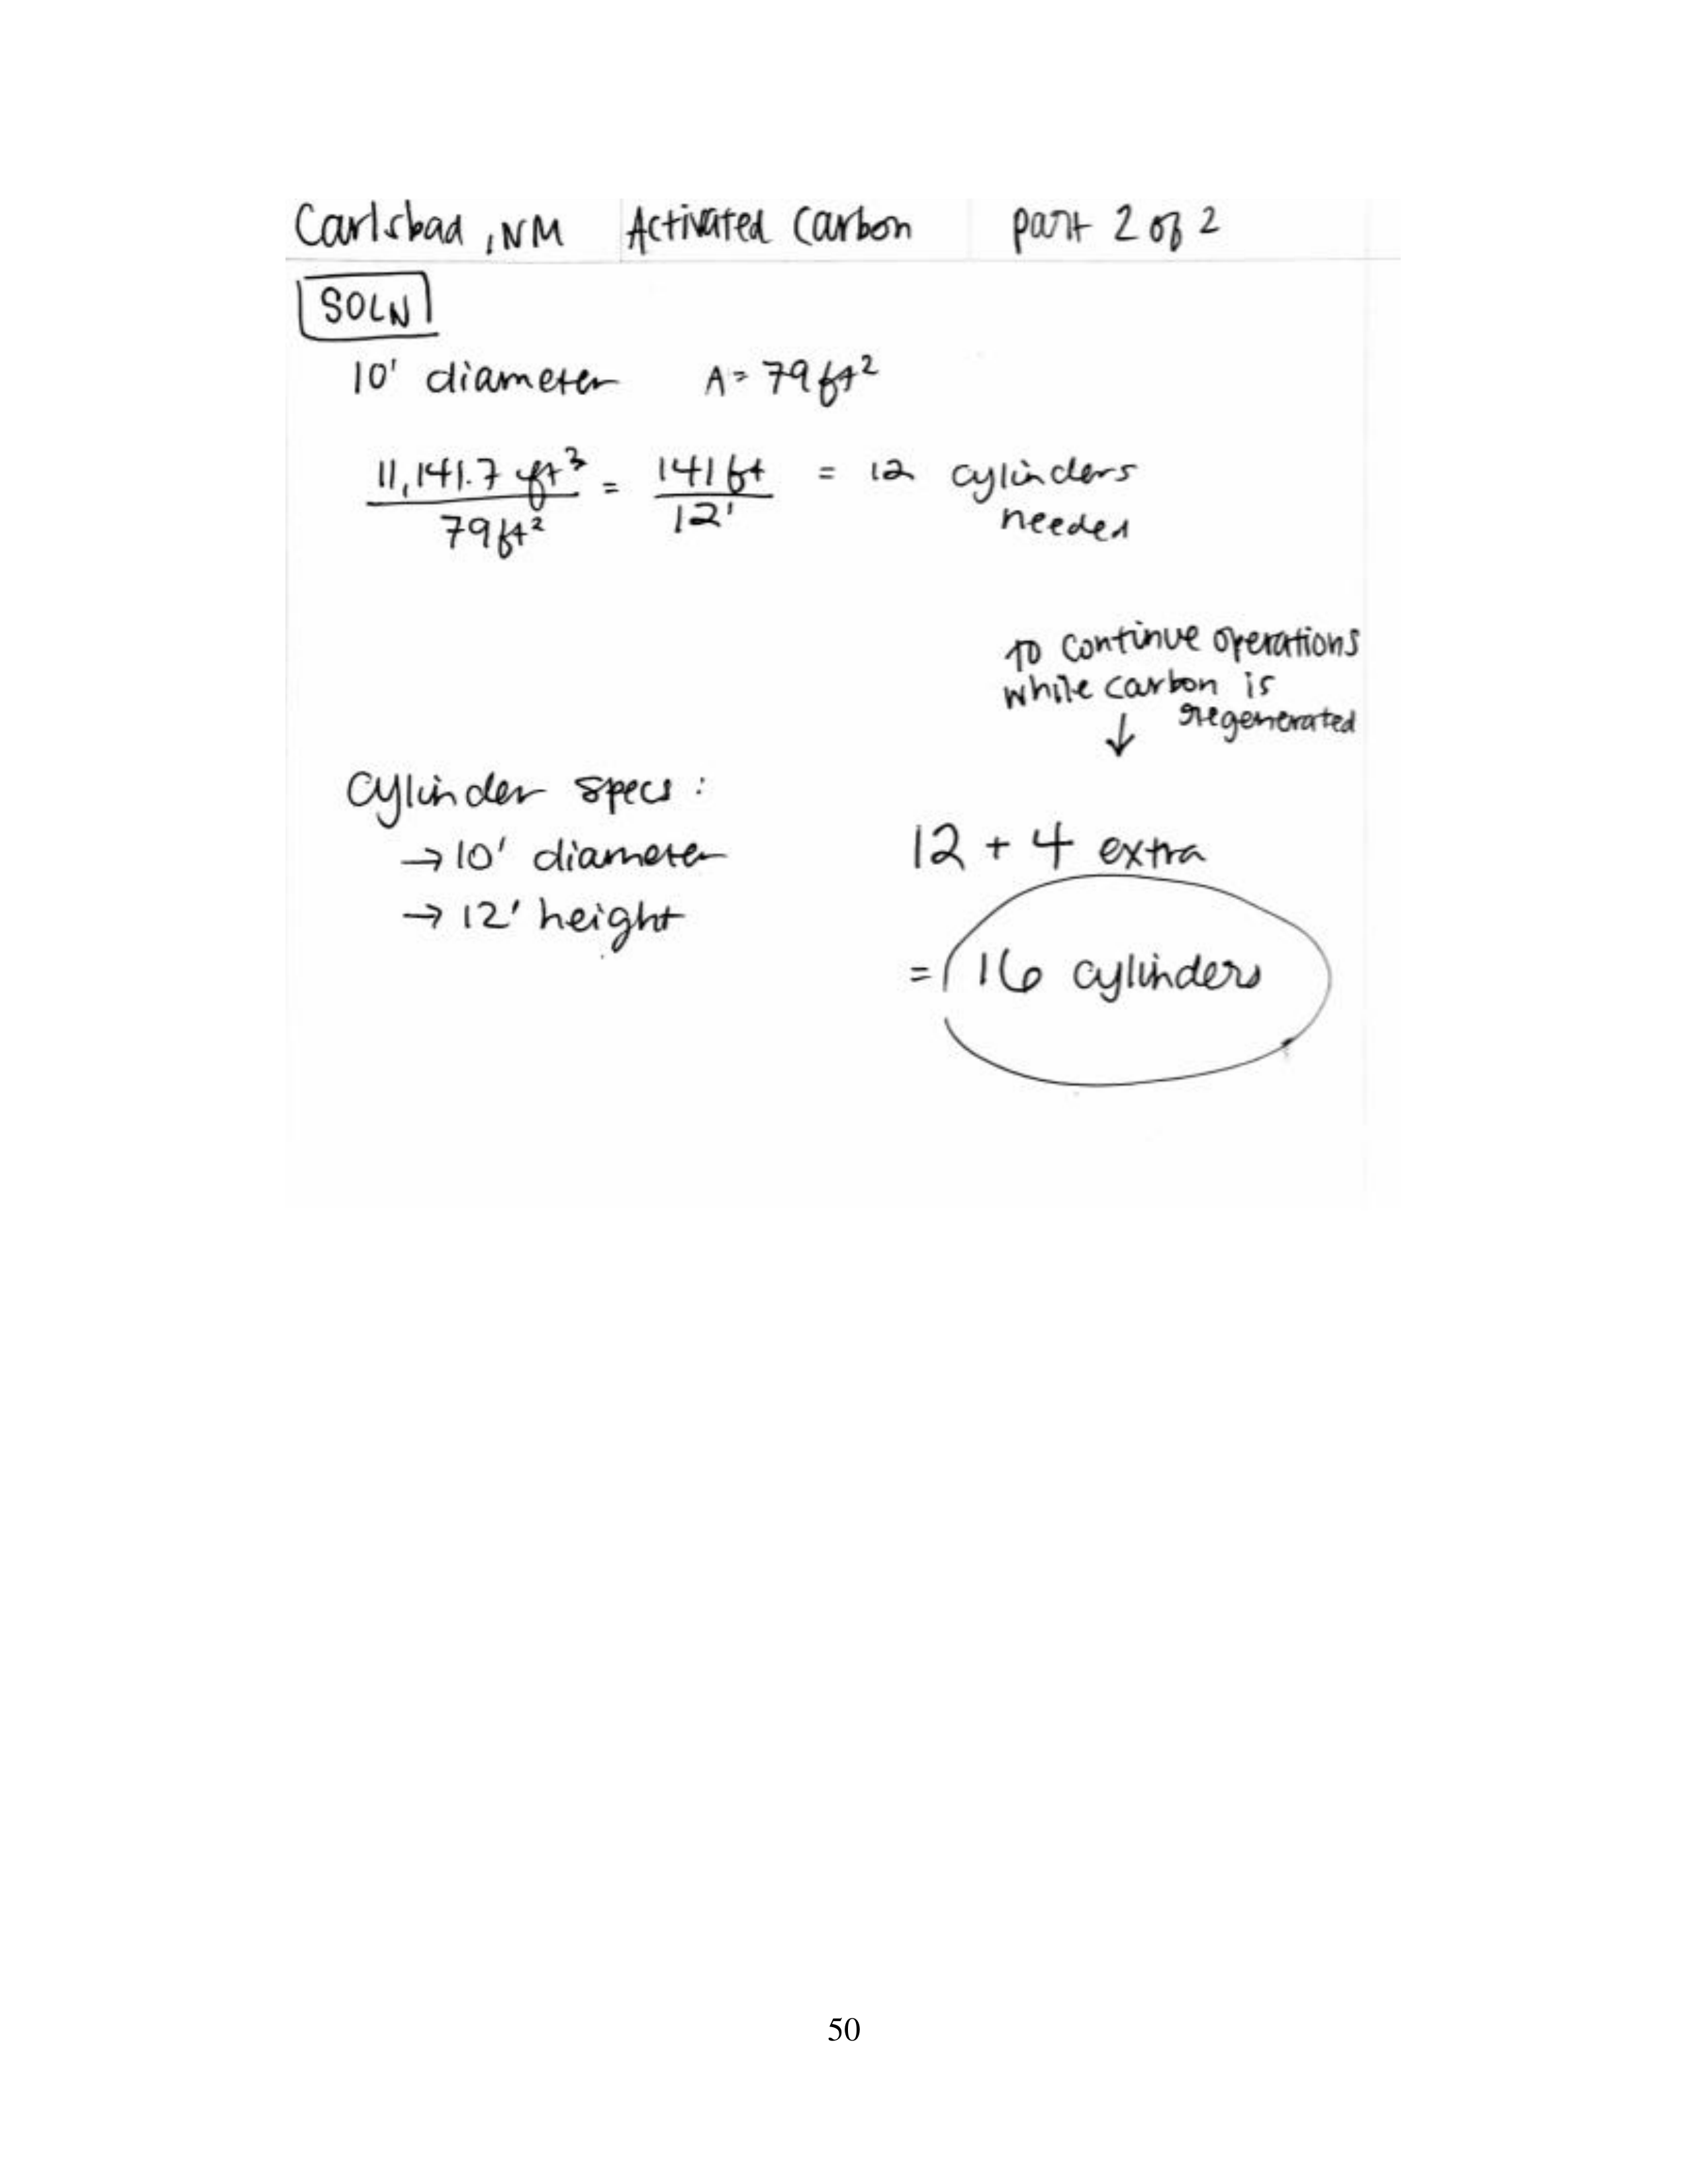 Carlsbad, NM Activated Carbon part 2 of 2
SOLN
10' diameter A = 79 ft²
11,141.7 ft³ / 79 ft² = 141 ft / 12' = 12 cylinders
needed
to continue operations
while carbon is
regenerated
↓
Cylinder specs:
→ 10' diameter
→ 12' height
12 + 4 extra
= 16 cylinders
50